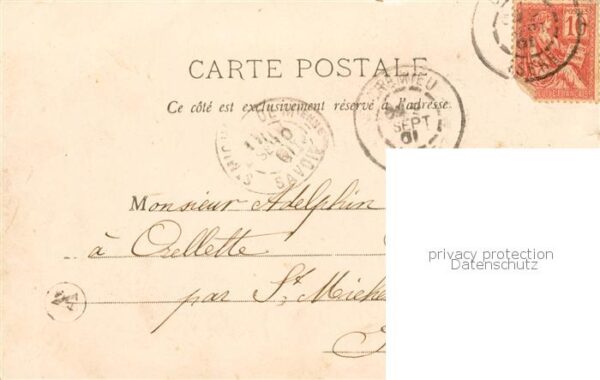 10
CARTE POSTALE
Ce côté est exclusivement réservé à l'adresse.
SEPT
01
SAVOIE
Monsieur Adelphin
à Orellette
par St Miche
privacy protection
Datenschutz